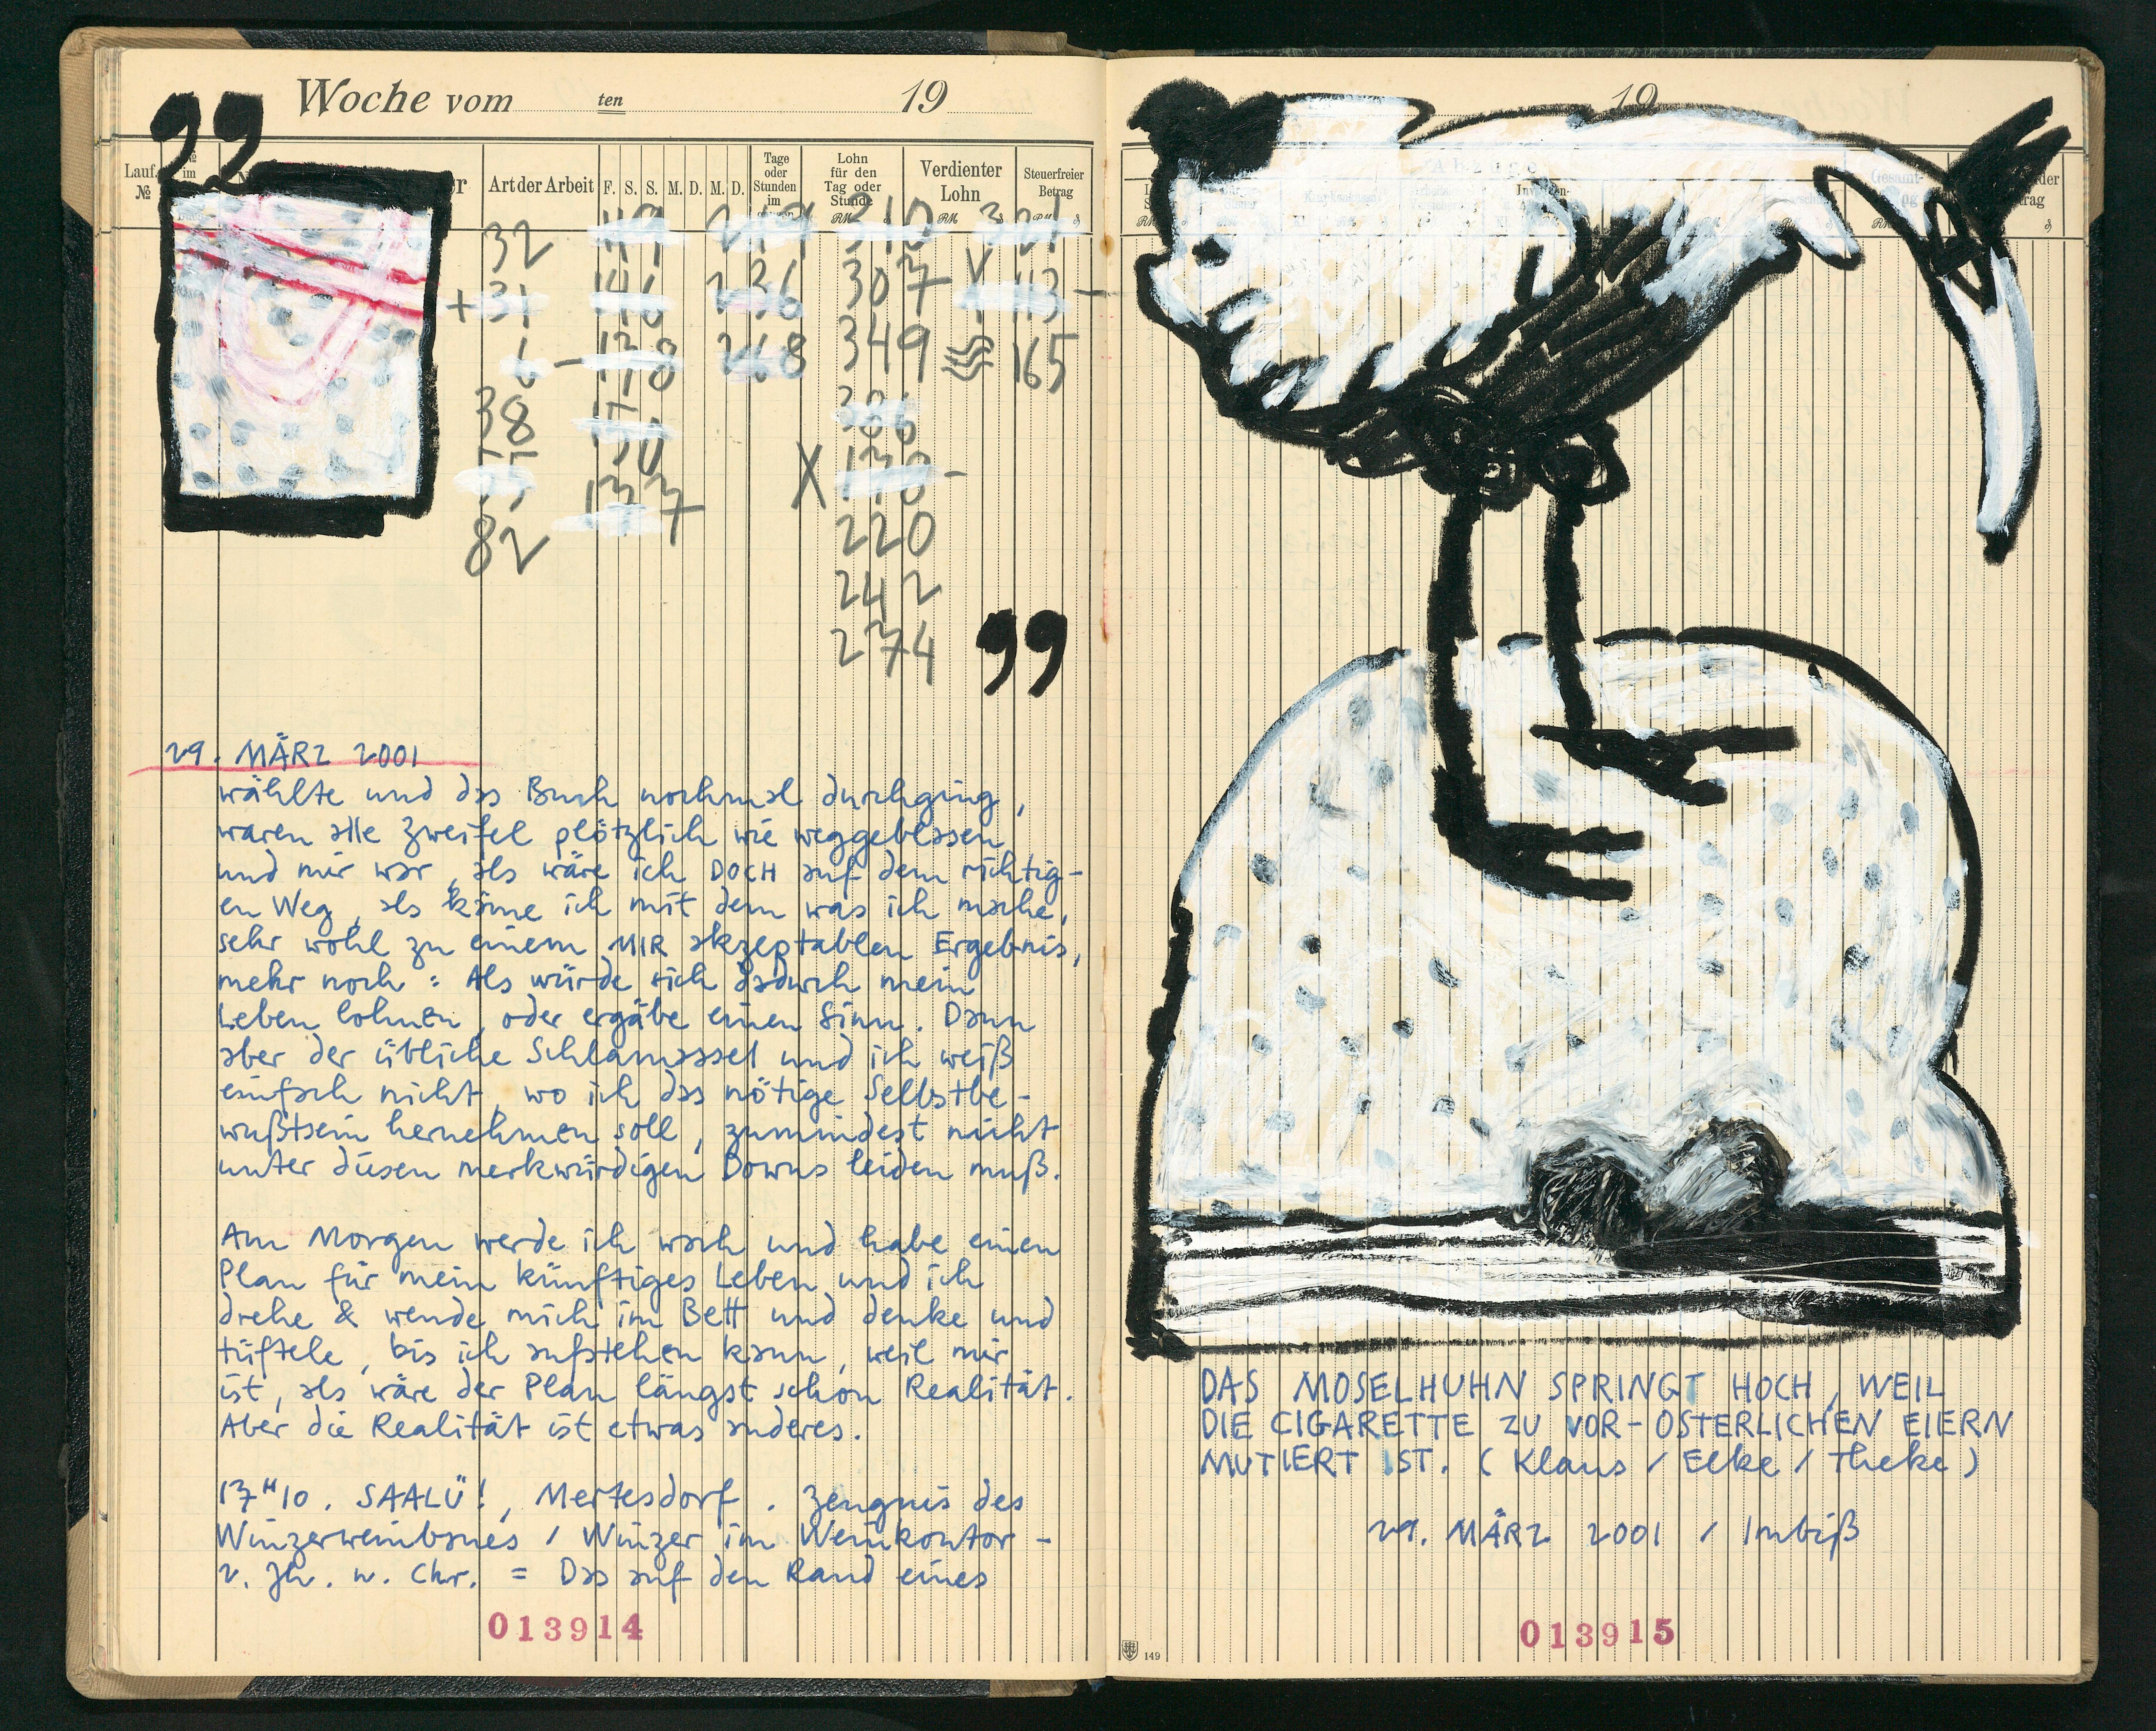 Woche vom ten 19
99
Lauf. № № im Art der Arbeit F. S. S. M. D. M. D. Tage oder Stunden im Lohn für den Tag oder Stunde Verdienter Lohn Steuerfreier Betrag
RM RM RM
32 149 219 310 321
+ 31 146 236 307 X 113 -
6 - 178 268 349 165
38 386
X 178 -
82 137 220
242
274
99
29. MÄRZ 2001
wählte und das Buch nochmal durchging,
waren alle Zweifel plötzlich wie weggeblasen
und mir war, als wäre ich DOCH auf dem richtig-
en Weg, als käme ich mit dem was ich mache,
sehr wohl zu einem MIR akzeptablen Ergebnis,
mehr noch: Als würde sich dadurch mein
Leben lohnen, oder ergäbe einen Sinn. Dann
aber der übliche Schlamassel und ich weiß
einfach nicht, wo ich das nötige Selbstbe-
wußtsein hernehmen soll, zumindest nicht
unter diesen merkwürdigen Downs leiden muß.
Am Morgen werde ich wach und habe einen
Plan für mein künftiges Leben und ich
drehe & wende mich im Bett und denke und
tüftele, bis ich aufstehen kann, weil mir
ist, als wäre der Plan längst schon Realität.
Aber die Realität ist etwas anderes.
17H10. SAALÜ!, Mertesdorf. Zeugnis des
Winzerweinbaues / Winzer im Weinkontor -
2. Jh. n. Chr. = Das auf den Rand eines
013914
19
DAS MOSELHUHN SPRINGT HOCH, WEIL
DIE CIGARETTE ZU VOR-ÖSTERLICHEN EIERN
MUTIERT IST. (Klaus / Elke / Theke)
29. MÄRZ 2001 / Imbiß
013915
149